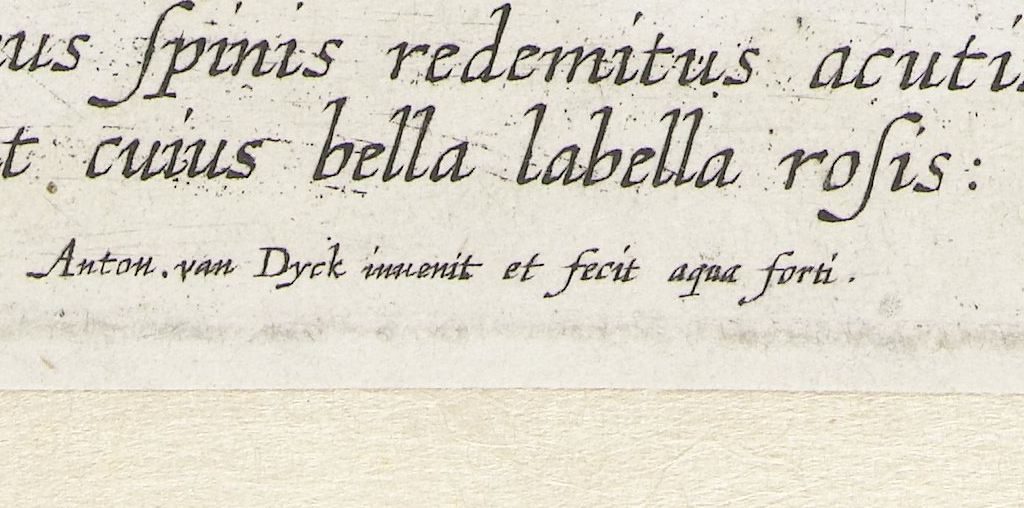 us ſpinis redemitus acuti
t cuius bella labella roſis:
Anton. van Dyck inuenit et fecit aqua forti.